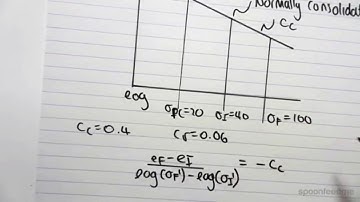 Normally consolidat
Cc
log
σpc=20 σI=40 σF=100
Cc=0.4 Cr=0.06
eF-eI
log(σF')-log(σI') = -Cc
spoonfeedme